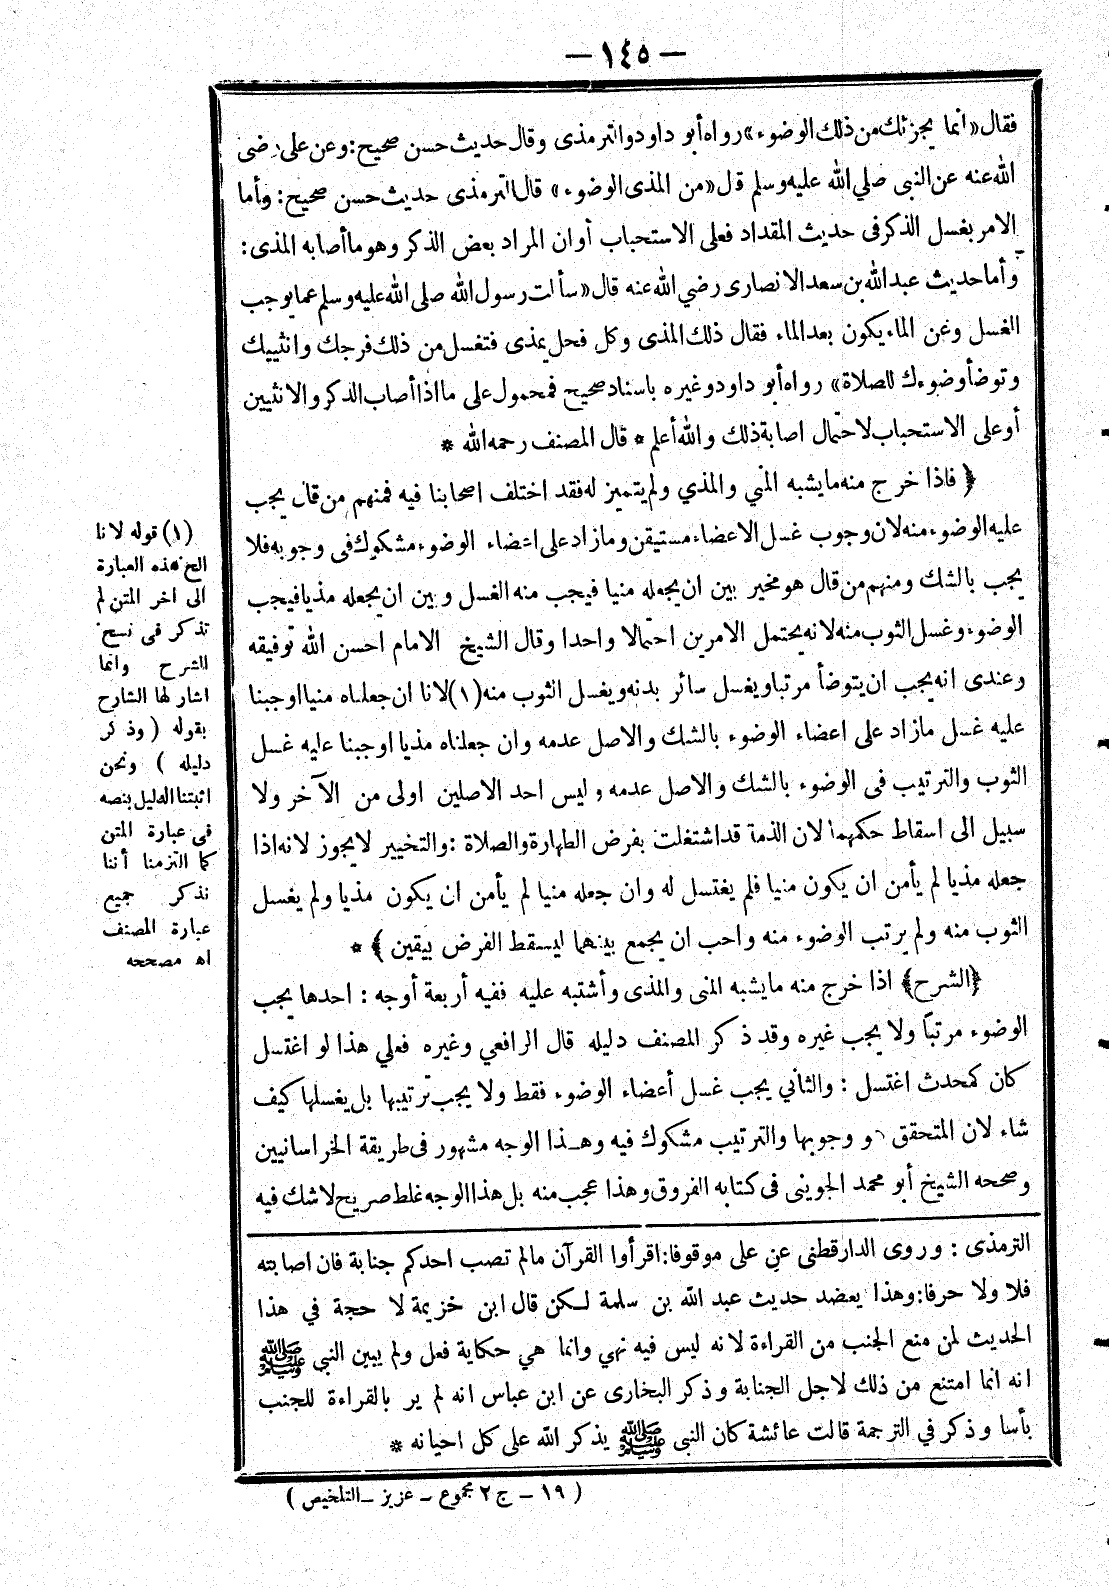 — ١٤٥ —
فقال «انما يجزئك من ذلك الوضوء» رواه أبو داود والترمذى وقال حديث حسن صحيح: وعن على رضى
الله عنه عن النبى صلي الله عليه وسلم قال «من المذى الوضوء» قال الترمذى حديث حسن صحيح: وأما
الامر بغسل الذكر فى حديث المقداد فعلى الاستحباب أو ان المراد بعض الذكر وهو ما أصابه المذى:
وأما حديث عبد الله بن سعد الانصارى رضي الله عنه قال «سألت رسول الله صلى الله عليه وسلم عما يوجب
الغسل وعن الماء يكون بعد الماء فقال ذلك المذى وكل فحل يمذى فتغسل من ذلك فرجك وانثييك
وتوضأ وضوءك للصلاة» رواه أبو داود وغيره باسناد صحيح فمحمول على ما اذا أصاب الذكر والانثيين
أو على الاستحباب لاحتمال اصابة ذلك والله أعلم * قال المصنف رحمه الله *
﴿ فاذا خرج منه ما يشبه المنى والمذي ولم يتميز له فقد اختلف اصحابنا فيه فمنهم من قال يجب
عليه الوضوء منه لان وجوب غسل الاعضاء مستيقن وما زاد على اعضاء الوضوء مشكوك فى وجوبه فلا
يجب بالشك ومنهم من قال هو مخير بين ان يجعله منيا فيجب منه الغسل وبين ان يجعله مذيا فيجب
الوضوء وغسل الثوب منه لانه يحتمل الامرين احتمالا واحدا وقال الشيخ الامام احسن الله توفيقه
وعندى انه يجب ان يتوضأ مرتبا ويغسل سائر بدنه ويغسل الثوب منه (١) لانا ان جعلناه منيا اوجبنا
عليه غسل ما زاد على اعضاء الوضوء بالشك والاصل عدمه وان جعلناه مذيا اوجبنا عليه غسل
الثوب والترتيب فى الوضوء بالشك والاصل عدمه وليس احد الاصلين اولى من الآخر ولا
سبيل الى اسقاط حكمهما لان الذمة قد اشتغلت بفرض الطهارة والصلاة : والتخيير لا يجوز لانه اذا
جعله مذيا لم يأمن ان يكون منيا فلم يغتسل له وان جعله منيا لم يأمن ان يكون مذيا ولم يغسل
الثوب منه ولم يرتب الوضوء منه واحب ان يجمع بينهما ليسقط الفرض بيقين ﴾ *
﴿الشرح﴾ اذا خرج منه ما يشبه المنى والمذى وأشتبه عليه ففيه أربعة أوجه : احدها يجب
الوضوء مرتبًا ولا يجب غيره وقد ذكر المصنف دليله قال الرافعي وغيره فعلي هذا لو اغتسل
كان كمحدث اغتسل : والثانى يجب غسل أعضاء الوضوء فقط ولا يجب ترتيبها بل يغسلها كيف
شاء لان المتحقق هو وجوبها والترتيب مشكوك فيه وهذا الوجه مشهور فى طريقة الخراسانيين
وصححه الشيخ أبو محمد الجوينى فى كتابه الفروق وهذا عجب منه بل هذا الوجه غلط صريح لا شك فيه
(١) قوله لانا
الخ هذه العبارة
الى اخر المتن لم
تذكر فى نسخ
الشرح وانما
اشار لها الشارح
بقوله (وذكر
دليله ) ونحن
اثبتنا الدليل بنصه
فى عبارة المتن
كما التزمنا أننا
نذكر جميع
عبارة المصنف
اه مصححه
الترمذى : وروى الدارقطنى عن على موقوفا: اقرأوا القرآن مالم تصب احدكم جنابة فان اصابته
فلا ولا حرفا: وهذا يعضد حديث عبد الله بن سلمة لكن قال ابن خزيمة لا حجة في هذا
الحديث لمن منع الجنب من القراءة لانه ليس فيه نهي وانما هي حكاية فعل ولم يبين النبى ﷺ
انه انما امتنع من ذلك لاجل الجنابة وذكر البخارى عن ابن عباس انه لم ير بالقراءة للجنب
بأسا وذكر في الترجمة قالت عائشة كان النبى ﷺ يذكر الله على كل احيانه *
( ١٩ – ج ٢ مجموع – عزيز – التلخيص )